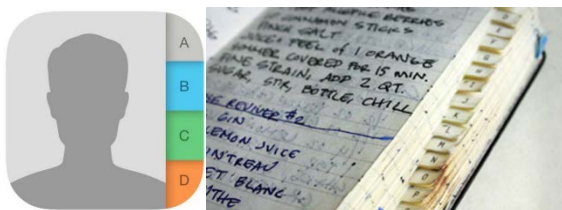 A
B
C
D
BERRIES
CINNAMON STICKS
SALT
PEEL of 1 ORANGE
COVERED FOR 15 MIN.
FINE STRAIN, ADD 2 QT.
SUGAR, STIR, BOTTLE, CHILL
SE REVIVER #2
GIN
LEMON JUICE
NTREAU
ET BLANC
J
K
L
M
N
O